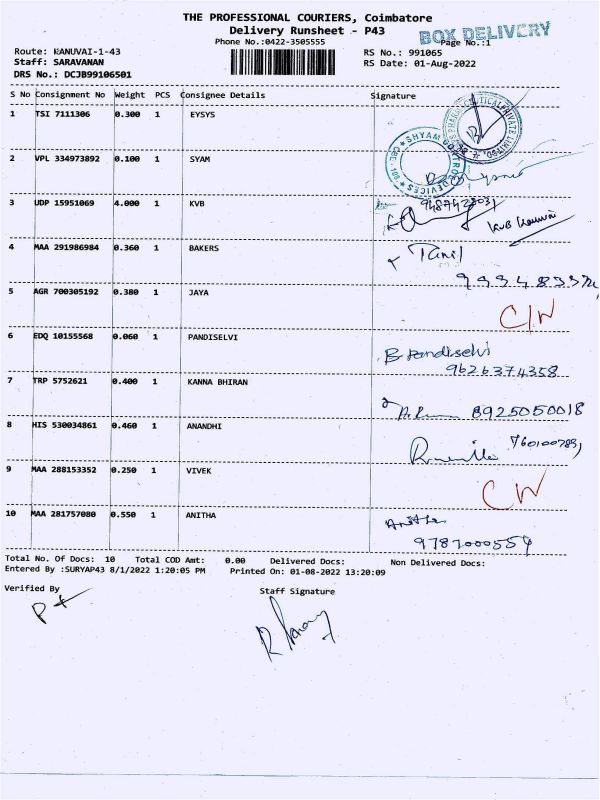 THE PROFESSIONAL COURIERS, Coimbatore
Delivery Runsheet - P43
BOX DELIVERY
Phone No.:0422-3505555
Page No.:1
Route: KANUVAI-1-43
RS No.: 991065
Staff: SARAVANAN
RS Date: 01-Aug-2022
DRS No.: DCJB99106501
S No Consignment No Weight PCS Consignee Details Signature
1 TSI 7111306 0.300 1 EYSYS
2 VPL 334973892 0.100 1 SYAM
SHYAM CONTROL DEVICES
3 UDP 15951069 4.000 1 KVB
KVB Kanuvai
4 MAA 291986984 0.360 1 BAKERS
5 AGR 700305192 0.380 1 JAYA
6 EDQ 10155568 0.060 1 PANDISELVI
Pandiselvi
9626374358
7 TRP 5752621 0.400 1 KANNA BHIRAN
8925050018
8 HIS 530034861 0.460 1 ANANDHI
9 MAA 288153352 0.250 1 VIVEK
10 MAA 281757080 0.550 1 ANITHA
Anitha
Total No. Of Docs: 10 Total COD Amt: 0.00 Delivered Docs: Non Delivered Docs:
Entered By :SURYAP43 8/1/2022 1:20:05 PM Printed On: 01-08-2022 13:20:09
Verified By
Staff Signature